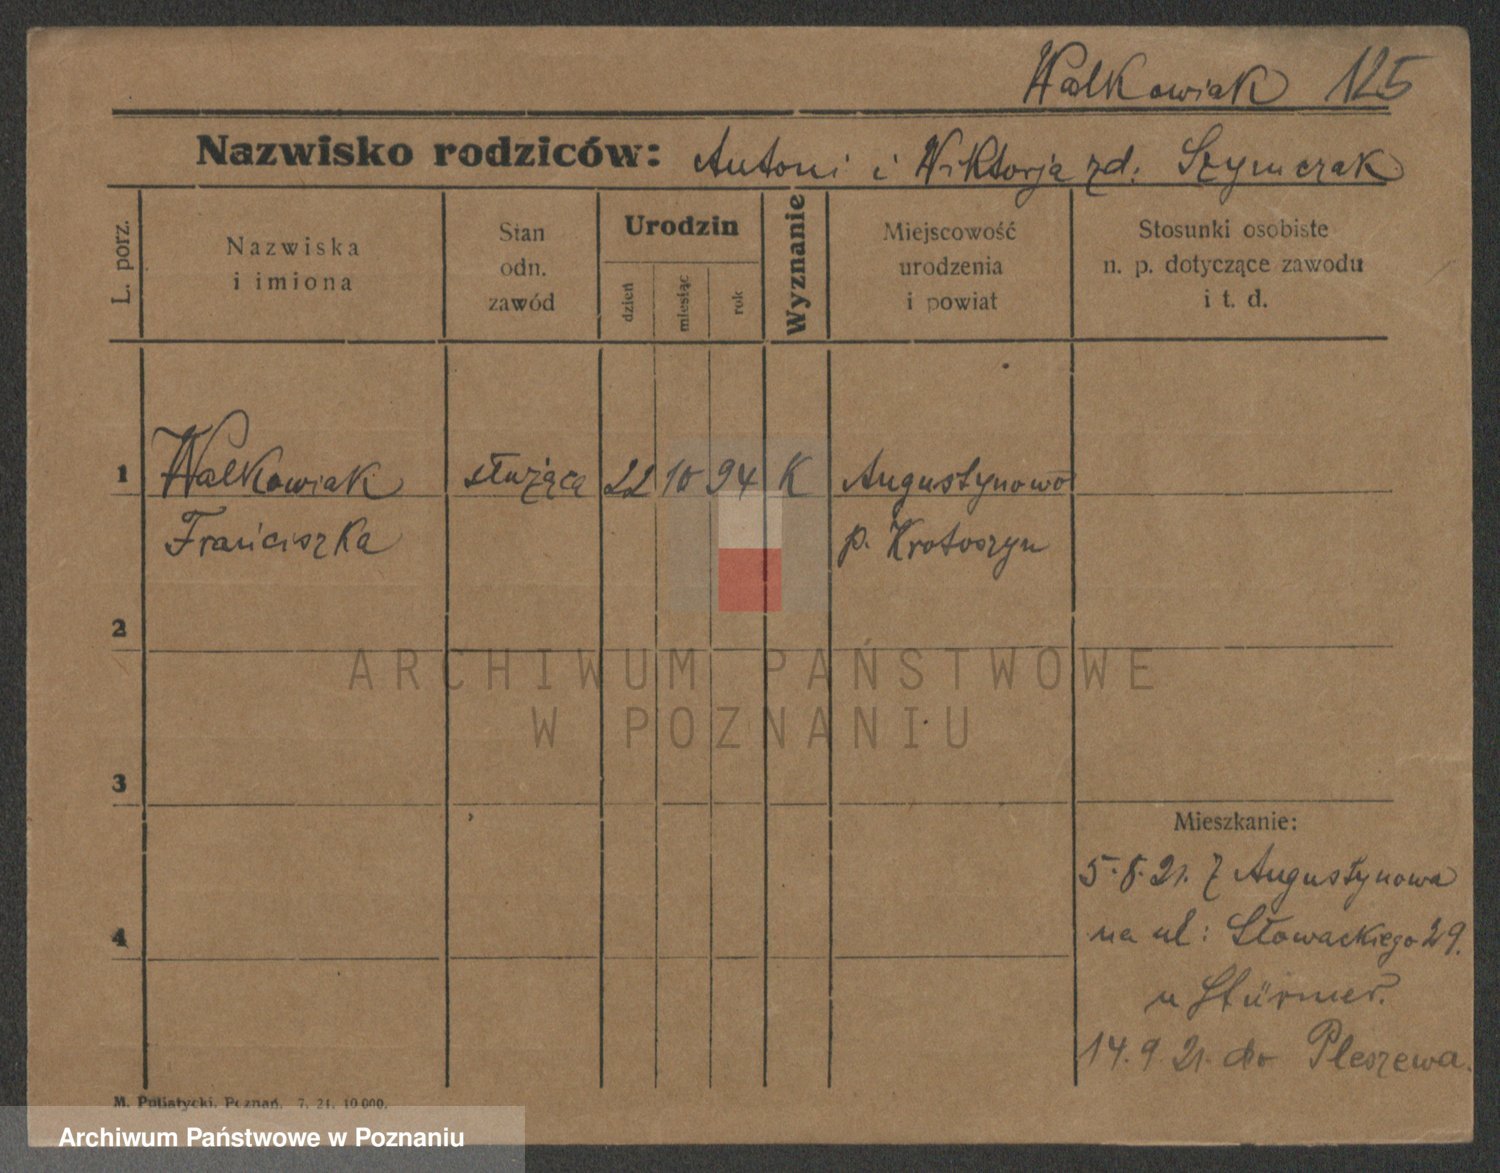 Walkowiak 125
Nazwisko rodziców: Antoni i Wiktorja zd. Szymczak
L. porz.
Nazwiska
i imiona
Stan
odn.
zawód
Urodzin
dzień
miesiąc
rok
Wyznanie
Miejscowość
urodzenia
i powiat
Stosunki osobiste
n. p. dotyczące zawodu
i t. d.
1 Walkowiak służąca 22 10 94 K Augustynowo
Franciszka p. Krotoszyn
2
ARCHIWUM PAŃSTWOWE
W POZNANIU
3
Mieszkanie:
5.8.21. z Augustynowa
4 na ul: Słowackiego 29.
u Stürmer.
14.9.21. do Pleszewa.
M. Putiatycki, Poznań, 7. 21. 10 000.
Archiwum Państwowe w Poznaniu